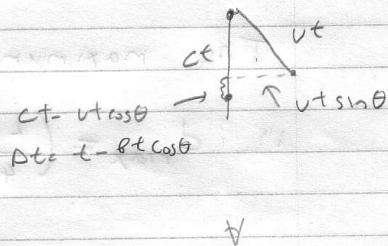 vt
ct
ct - vt cosθ
vt sinθ
Δt = t - βt cosθ